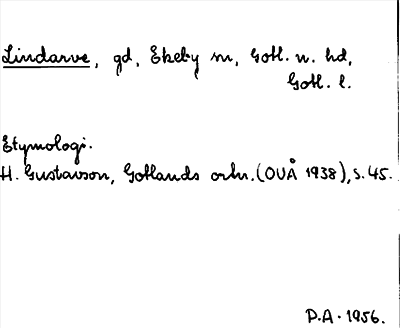 Lindarve, gd, Ekeby sn, Gotl. n. hd,
Gotl. l.
Etymologi.
H. Gustavson, Gotlands ortn. (OUÅ 1938), s. 45.
P.A. 1956.